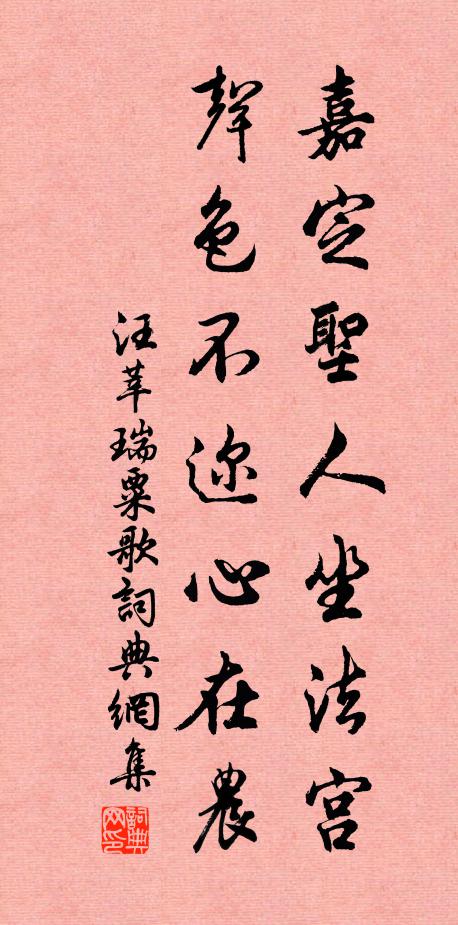 嘉定聖人坐法宮
聲色不邇心在農
汪莘瑞粟歌詞典網集
詞典网印